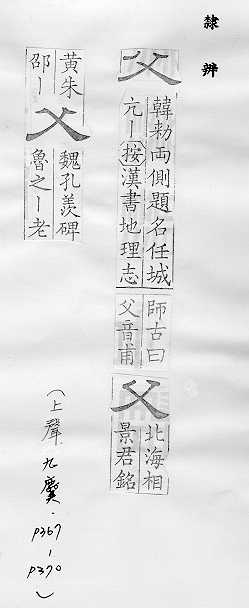 隸辨
父
韓勑両側題名任城
亢丨按漢書地理志
師古曰
父音甫
父
北海相
景君銘
黃朱
邵丨
父
魏孔羨碑
魯之丨老
(上聲 九麌. P367-P370)